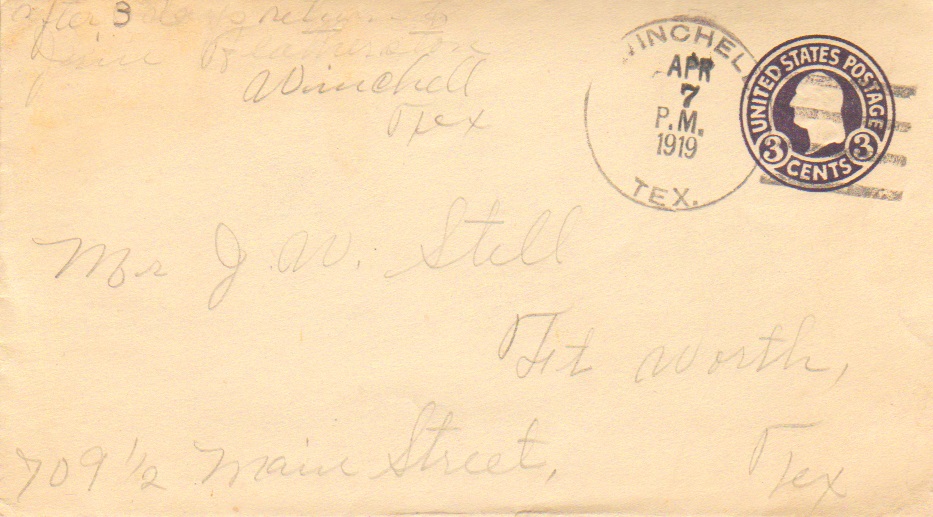 after 3 days return to
Featherston
Winchell
Tex
WINCHELL
APR
7
P.M.
1919
TEX.
UNITED STATES POSTAGE
3 CENTS 3
Mr J. W. Stell
Ft Worth,
709 1/2 Main Street,
Tex